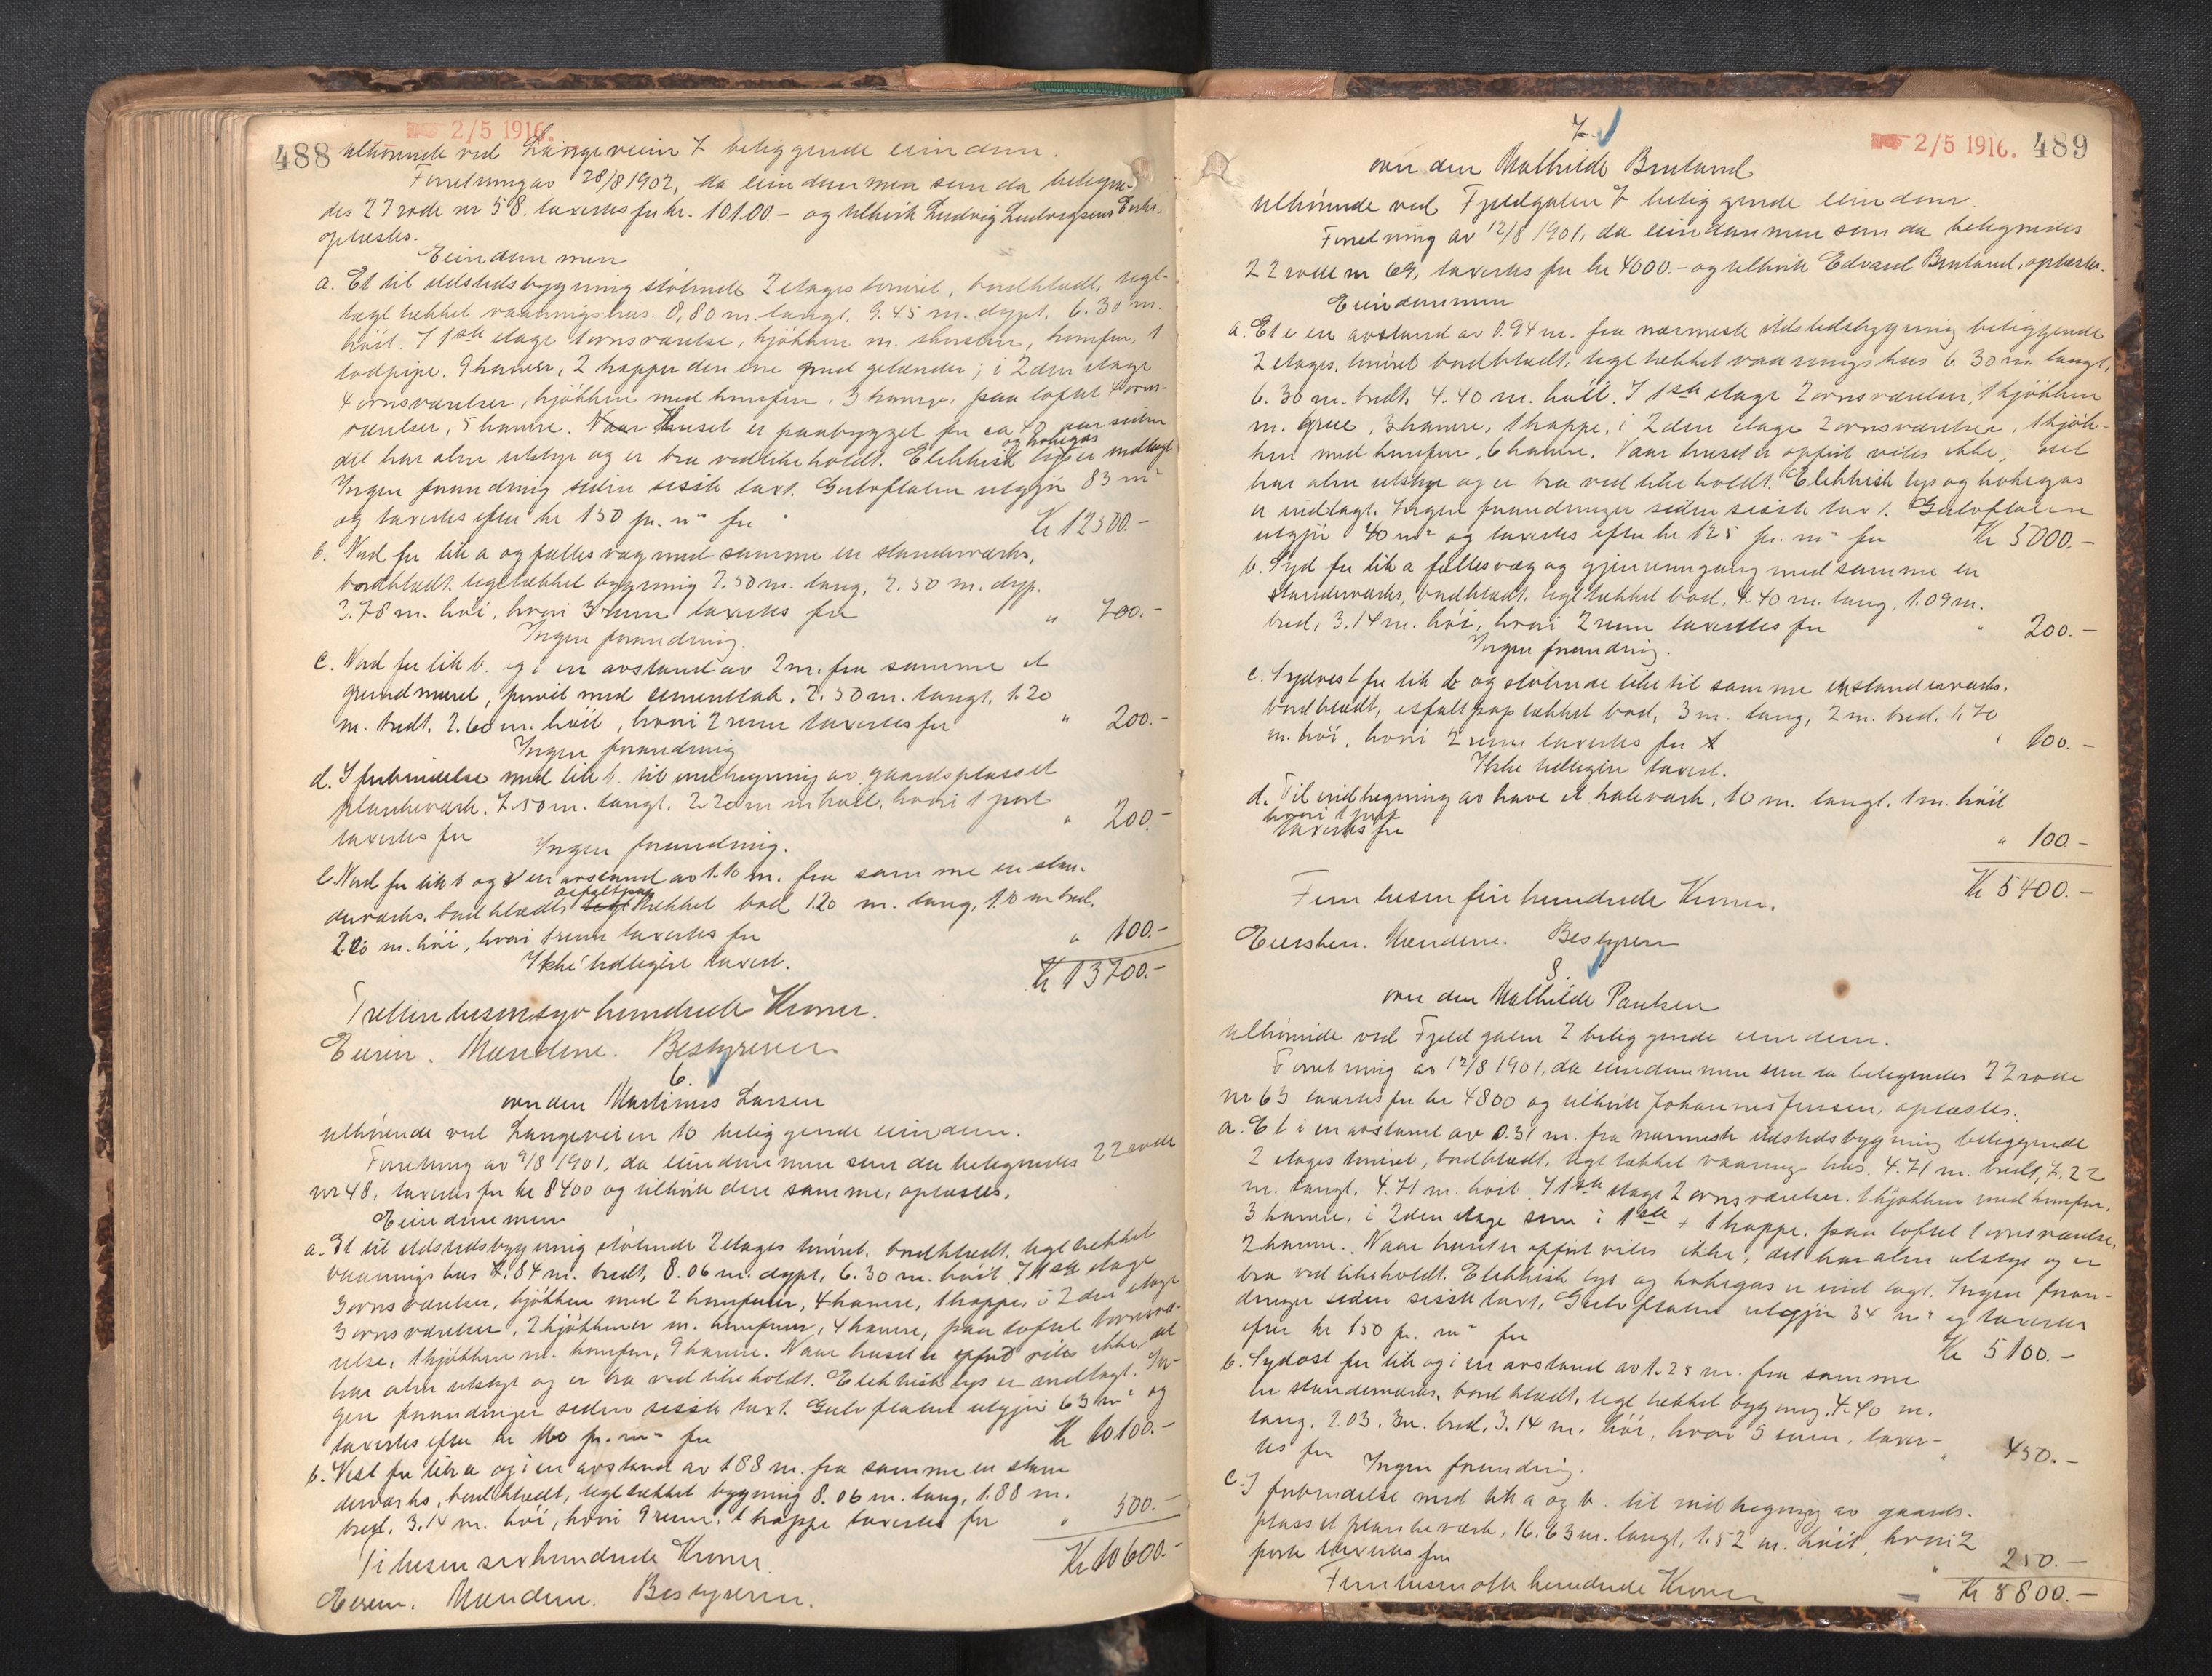 488 2/5 1916.
tilhørende ved Langeveien 7 beliggende eiendom.
Forretning av 28/8 1902, da eiendommen som da betegne-
des 22 rode nr 58. taxertes for kr. 10100.- og tilhørte Ludvig Ludvigsens Enke,
oplæstes.
Eiendommen
a. Et til ildstedsbygning stötende 2 etages tömret, bordklædt, tegl-
tægttækket vaaningshus. 8,80 m. langt. 9.45 m. dypt, 6.30 m.
höit. I 1ste etage 1 ovnsværelse, kjökken m. skorsten, komfur, 1
lodpipe. 9 hamre, 2 trapper den ene med gelænder; i 2den etage
4 ovnsværelser, kjökken med komfur, 3 hamre, paa loftet 4 ovns-
værelser, 5 hamre. Huset er paabygget for ca 40 aar siden
det har alm utstyr og er bra vedlikeholdt. Elektrisk lys og kokegas er indlagt
Ingen forandring siden sisste taxt. Gulvflaten utgjör 83 m²
og taxertes efter kr 150 pr. m² for Kr 12500.-
b. Nord for lit. a og fælles væg med samme en standerværks,
bordklædt. tegltækket bygning 7.50 m. lang, 2.50 m. dyp.
3.78 m. höi, hvori 3 rum taxertes for " 700.-
Ingen forandring.
c. Nord for lit b. og i en avstand av 2 m. fra samme et
grundmuret, forsvit med cementtak. 2.50 m. langt, 1.20
m. bredt. 2.60 m. höit, hvori 2 rum taxertes for " 200.-
Ingen forandring
d. I forbindelse med lit b. til indhegning av gaardsplasset
plankeværk. 7.50 m. langt. 2.20 m höit, hvori 1 port
taxertes for " 200.-
Ingen forandring.
e. Nord for lit b og i en avstand av 1.10 m. fra samme en stan-
derværks. bordklædt asfaltpap tækket bod 1.20 m. lang, 1.10 m bred.
2.20 m. höi, hvori 1 rum taxertes for " 100.-
Ikke tidligere taxert. Kr 13700.-
Tretten tusen syv hundrede Kroner.
Eieren. Mændene. Bestyreren
6.
over den Martinus Larsen
tilhörende ved Langeveien 10 beliggende eiendom.
Forretning av 9/8 1901, da eiendommen som da betegnedes 22 rode
nr 48, taxertes for kr 8400 og tilhörte den samme, oplæstes.
Eiendommen
a. Et til ildstedsbygning stötende 2 etages tömret, bordklædt, tegltækket
vaaningshus 7.84 m. bredt, 8.06 m. dypt, 6.30 m. höit. I 1ste etage
3 ovnsværelser, kjökken med 2 komfurer, 4 hamre, 1 trappe, i 2den etage
3 ovnsværelser, 2 kjökkener m. komfurer, 4 hamre, paa loftet 1 ovnsvæ-
relse, 1 kjökken m. komfur, 9 hamre. Naar huset er opfört vites ikke, det
har alm utstyr og er bra vedlikeholdt. Elektrisk lys er indlagt. In-
gen forandringer siden sisste taxt. Gulvflaten utgjör 63 m² og
taxertes efter kr 160 pr. m² for Kr 10100.-
b. Vest for lit. a og i en avstand av 1.88 m. fra samme en stan
derværks, bordklædt, tegltækket bygning 8.06 m. lang, 1.88 m.
bred, 3.14 m. höi, hvori 9 rum, 1 trappe taxertes for " 500.-
Ti tusen sex hundrede Kroner. Kr 10600.-
Eieren. Mændene. Bestyreren.
7. 2/5 1916. 489
over den Mathilde Bruland
tilhörende ved Fjeldgaten 7 beliggende eiendom.
Forretning av 12/8 1901, da eiendommen som da betegnedes
22 rode nr 69, taxertes for kr 4000.- og tilhörte Edvard Bruland, oplæstes.
Eiendommen
a. Et i en avstand av 0.94 m. fra nærmeste ildstedsbygning beliggende
2 etages, tömret bordklædt, tegltækket vaaningshus 6.30 m. langt,
6.30 m. bredt, 4.40 m. höit. I 1ste etage 2 ovnsværelser, 1 kjökken
m. grue, 3 hamre, 1 trappe, i 2den etage 2 ovnsværelser, 1 kjök-
ken med komfur, 6 hamre. Naar huset er opfört vites ikke; det
har alm utstyr og er bra vedlikeholdt. Elektrisk lys og kokegas
er indlagt. Ingen forandringer siden sisste taxt. Gulvflaten
utgjör 40 m² og taxertes efter kr 125 pr. m² for Kr 5000.-
b. Syd for lit a fællesvæg og gjennemgang med samme en
standerværks, bordklædt, tegltækket bod, 4.40 m. lang, 1.09 m.
bred, 3.14 m. höi, hvori 2 rum taxertes for " 200.-
Ingen forandring.
c. Sydvest for lit b og stötende like til samme en standerværks.
bordklædt, asfaltpap tækket bod, 3 m. lang, 2 m. bred, 1.70
m. höi, hvori 2 rum taxertes for " 100.-
Ikke tidligere taxert.
d. Til indhegning av have et hakeværk, 10 m. langt, 1 m. höit
hvori 1 port
taxertes for " 100.-
Fem tusen fire hundrede Kroner. Kr 5400.-
Eiersken. Mændene. Bestyreren
8.
over den Mathilde Paulsen
tilhörende ved Fjeldgaten 2 beliggende eiendom.
Forretning av 12/8 1901, da eiendommen som da betegnedes 22 rode
nr 63 taxertes for kr 4800 og tilhörte Johannes Jensen, oplæstes.
a. Et i en avstand av 0.31 m. fra nærmeste ildstedsbygning beliggende
2 etages tömret, bordklædt, tegltækket vaanings hus. 4.71 m. bredt, 7.22
m. langt. 4.71 m. höit. I 1ste etage 2 ovnsværelser. 1 kjökken med komfur.
3 hamre, i 2den etage som i 1ste + 1 trappe. paa loftet 1 ovnsværelse,
2 hamre. Naar huset er opfört vites ikke; det har alm utstyr og er
bra vedlikeholdt. Elektrisk lys og kokegas er indlagt. Ingen foran-
dringer siden sisste taxt. Gulvflaten utgjör 34 m² og taxertes
efter kr 150 pr. m² for Kr 5100.-
b. Sydost for lit og i en avstand av 1.25 m. fra samme
en standerværks, bordklædt, tegltækket bygning, 4.40 m.
lang, 2.03 m. bred, 3.14 m. höi, hvori 5 rum. taxer-
tes for " 450.-
Ingen forandring.
c. I forbindelse med lit a og b. til indhegning av gaards-
plass et plankeværk, 16.63 m. langt, 1.52 m. höit, hvori 2
porte taxertes for " 250.-
Fem tusen otte hundrede Kroner Kr 5800.-